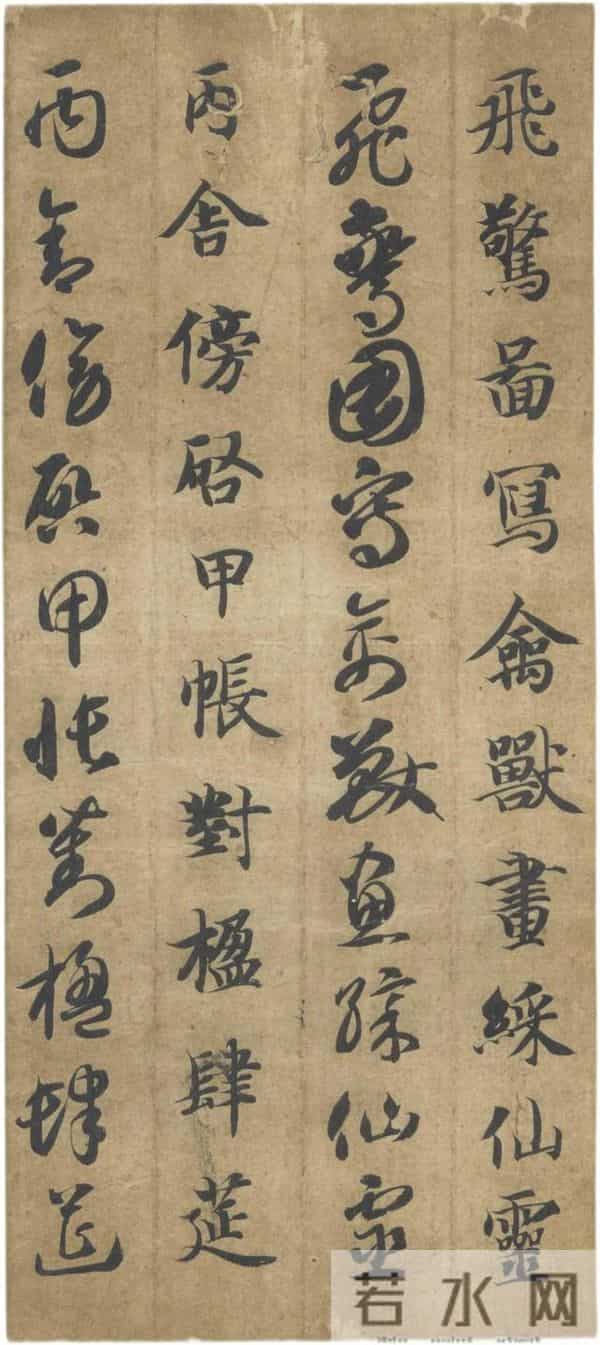 飛驚啚寫禽獸畫綵仙靈
飛驚圖寫禽獸畫綵仙靈
丙舍傍啓甲帳對楹肆莚
丙舍傍啓甲帳對楹肆莚
若水网